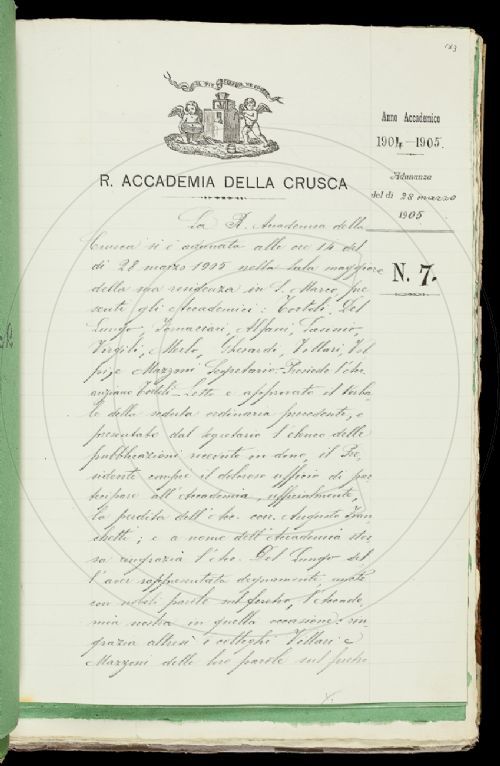 183
Anno Accademico
1904-1905.
R. ACCADEMIA DELLA CRUSCA
Adunanza
del dì 28 marzo
1905
N. 7.
La R. Accademia della
Crusca si è adunata alle ore 14 del
dì 28 marzo 1905 nella sala maggiore
della sua residenza in S. Marco, pre
senti gli Accademici: Tortoli, Del
Lungo, Fornaciari, Alfani,
Virgili, Merlo, Gherardi, Villari, Vol
pi, e Mazzoni Segretario. Presiede l'Arci
Tortoli. Letto e approvato il verba
le della seduta ordinaria precedente, e
presentato dal segretario l'elenco delle
pubblicazioni ricevute in dono, il Pre
sidente compie il doloroso ufficio di par
tecipare all'Accademia, ufficialmente,
la perdita dell'Acc. corr. Augusto Fran
chetti; e a nome dell'Accademia stes
sa ringrazia l'Acc. Del Lungo del
l'aver rappresentata degnamente, anche
con nobili parole sul feretro, l'Accade
mia nostra in quella occasione: rin
grazia altresì i colleghi Villari e
Mazzoni delle loro parole sul feretro